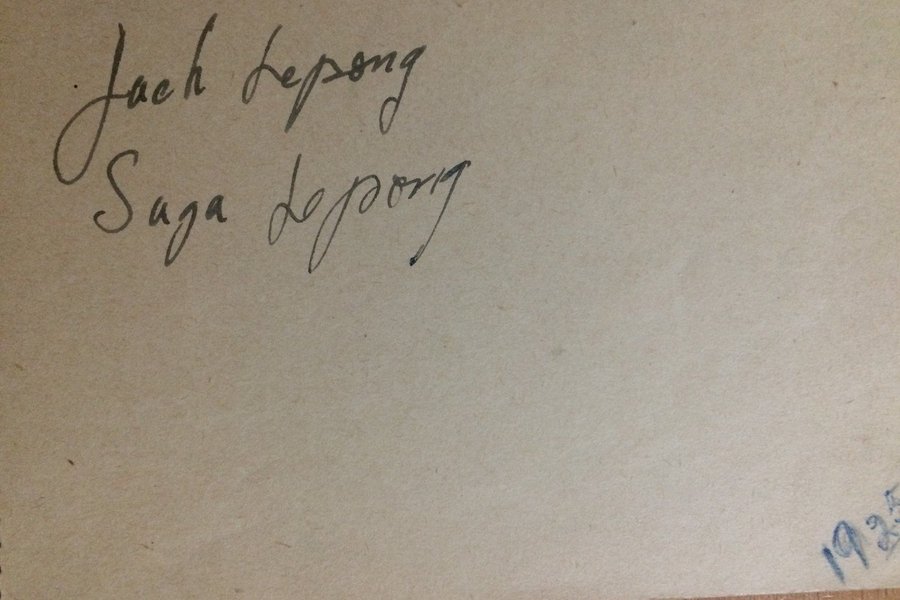 Jach Lepong
Suga Lepong
1925